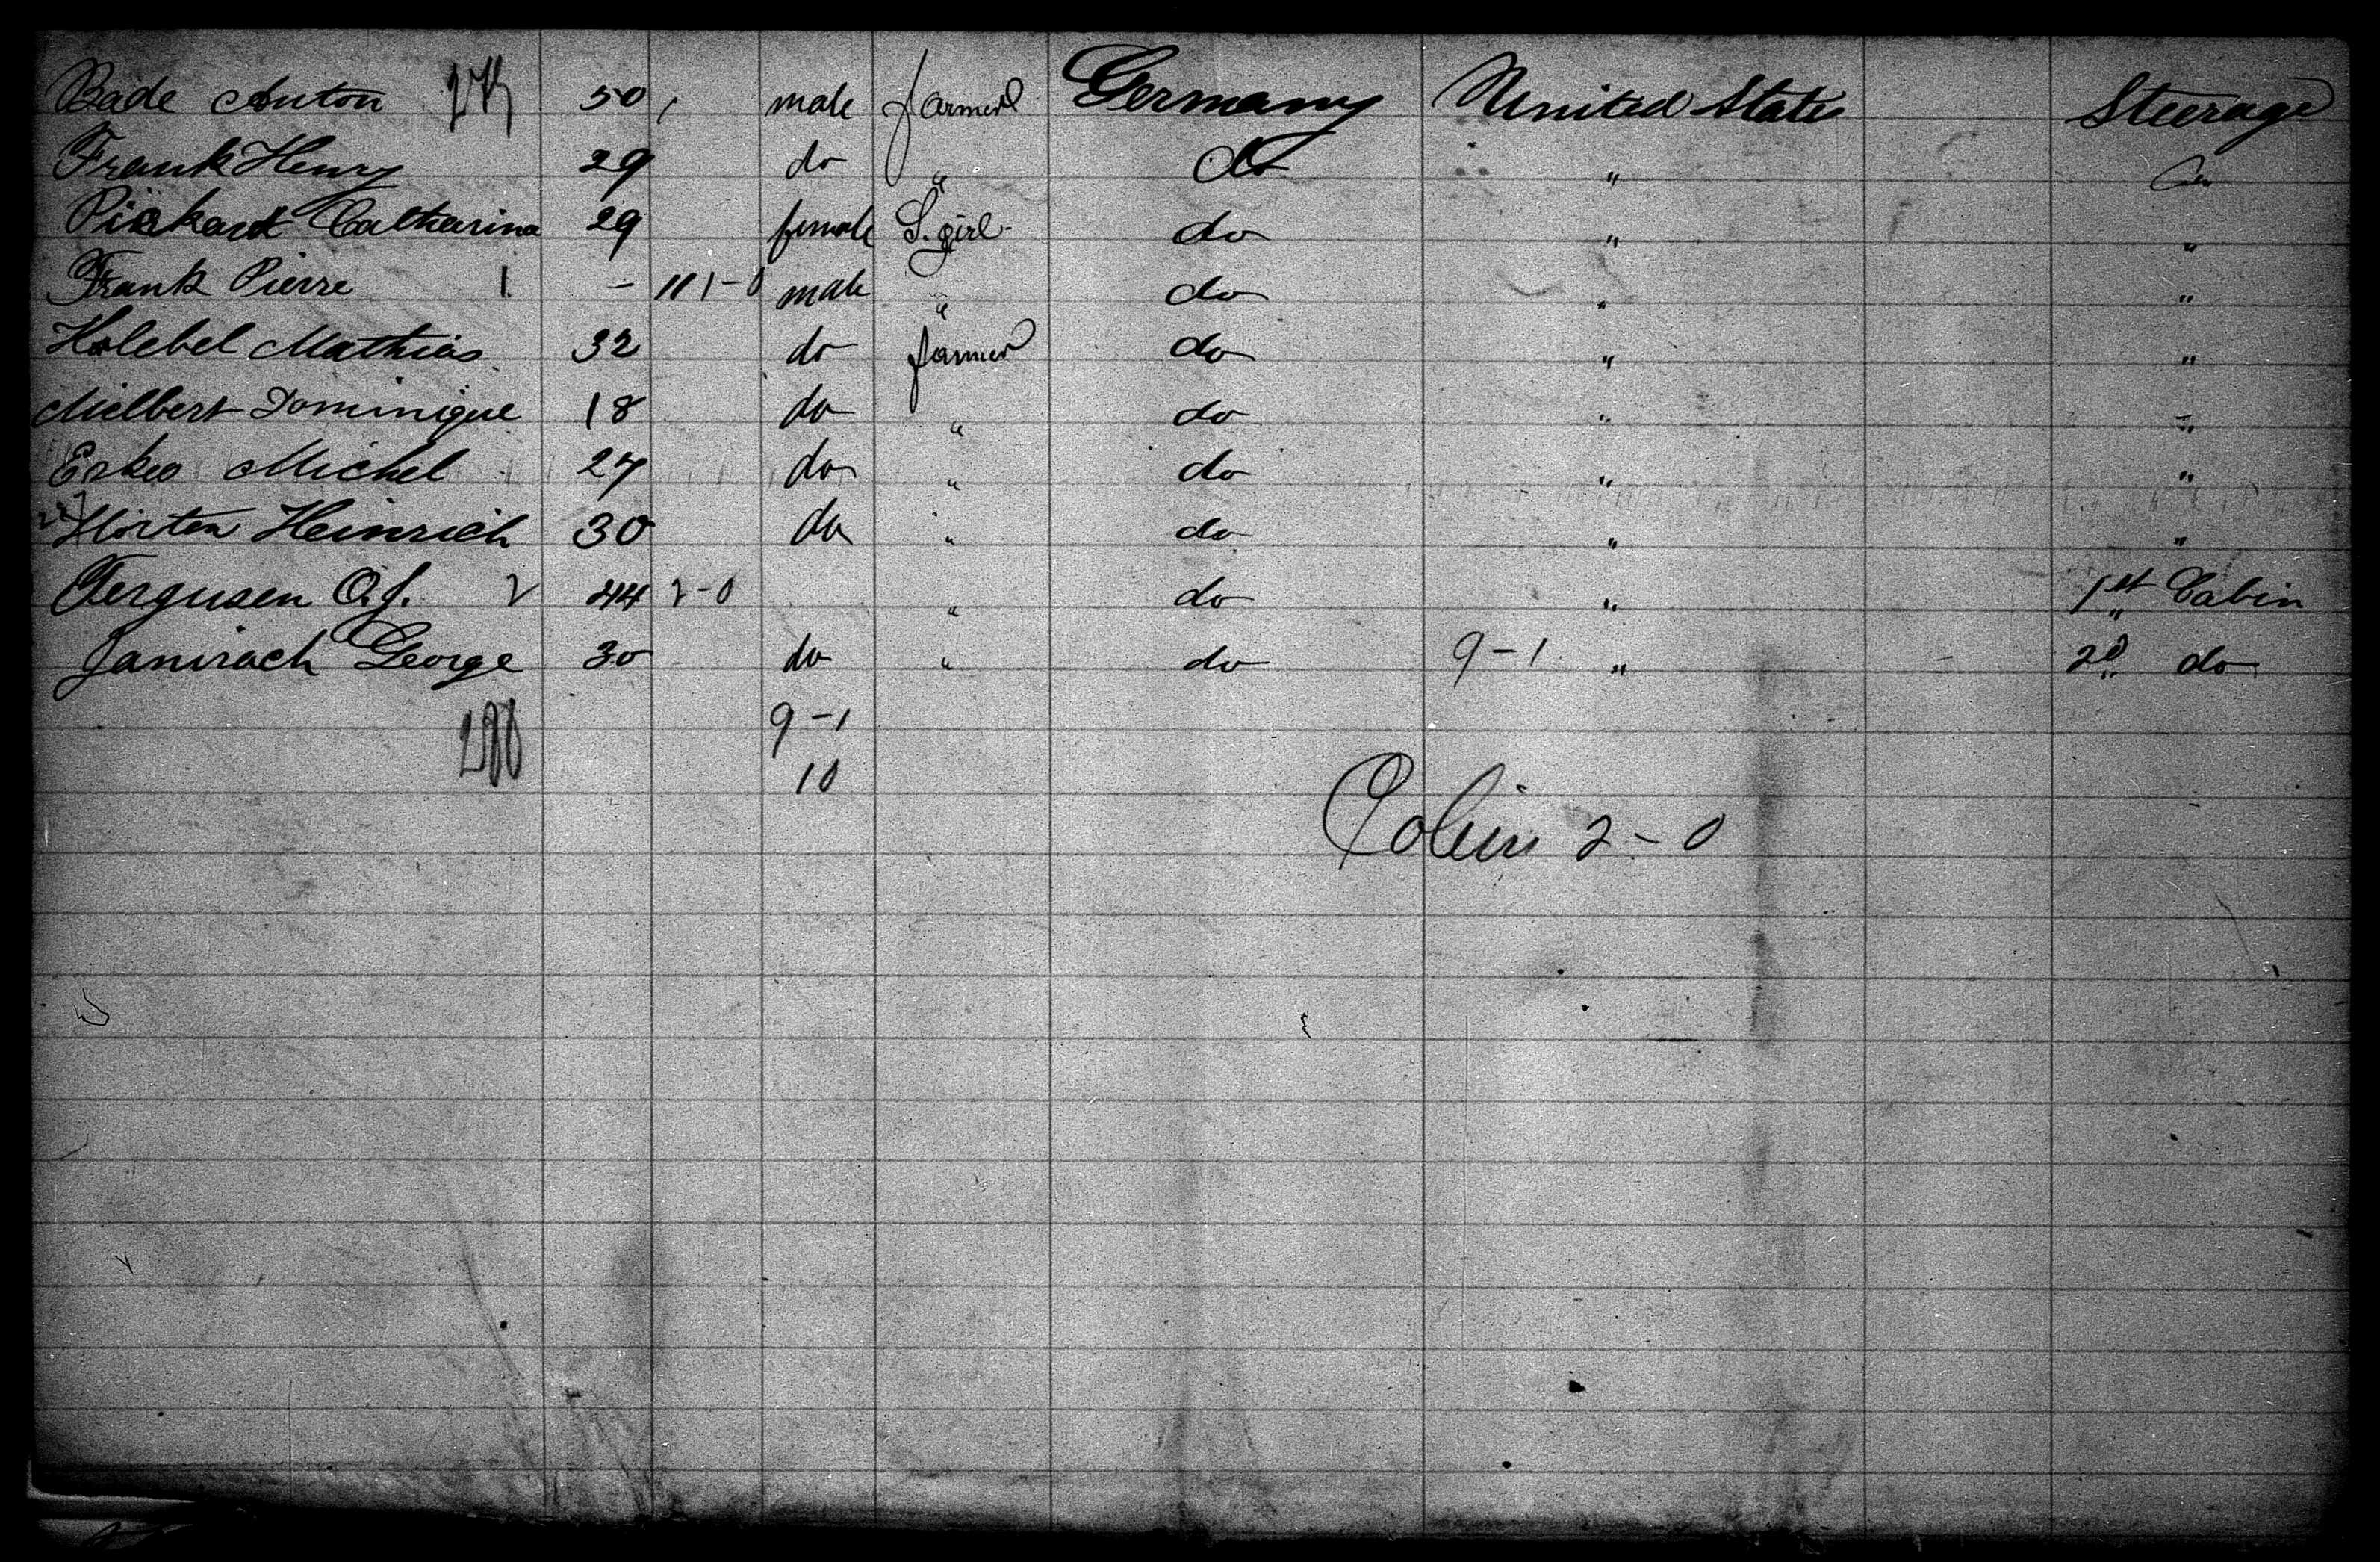 Bade Anton 50 male farmer Germany United States Steerage
Frank Henry 29 do " do " "
Pickard Catharina 29 female S. girl do " "
Frank Pierre 1 - 11 1-0 male " do " "
Holebel Mathias 32 do farmer do " "
Milbert Dominique 18 do " do " "
Michel 27 do " do " "
Heinrich 30 do " do " "
Fergusen O.J. 2 44 2-0 " do " 1st Cabin
George 30 do " do 9-1 " 2d do
9-1
10
Cabin 2-0